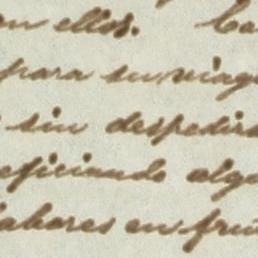 on ellos. Ca
para su viag
sin despedirs
eficiendo alg
labores en fru